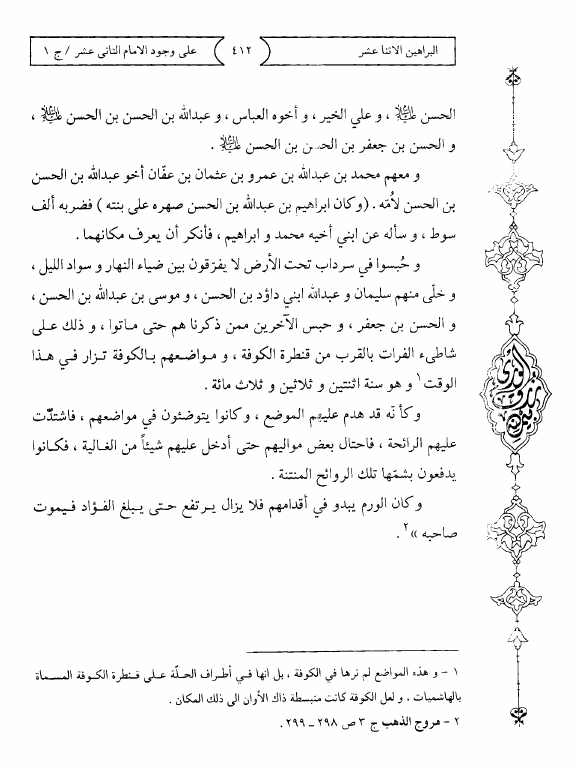 البراهين الاثنا عشر
٤١٢
على وجود الامام الثاني عشر / ج ١
الحسن ﵇ ، و علي الخير ، و أخوه العباس ، و عبدالله بن الحسن بن الحسن ﵇ ،
و الحسن بن جعفر بن الحسن بن الحسن ﵇ .
و معهم محمد بن عبدالله بن عمرو بن عثمان بن عفّان أخو عبدالله بن الحسن
بن الحسن لأمّه . (و كان ابراهيم بن عبدالله بن الحسن صهره على بنته ) فضربه ألف
سوط ، و سأله عن ابني أخيه محمد و ابراهيم ، فأنكر أن يعرف مكانهما .
و حُبسوا في سرداب تحت الأرض لا يفرّقون بين ضياء النهار و سواد الليل ،
و خلّى منهم سليمان و عبدالله ابني داؤد بن الحسن ، و موسى بن عبدالله بن الحسن ،
و الحسن بن جعفر ، و حبس الآخرين ممن ذكرنا هم حتى ماتوا ، و ذلك على
شاطىء الفرات بالقرب من قنطرة الكوفة ، و مواضعهم بالكوفة تزار في هذا
الوقت١ و هو سنة اثنتين و ثلاثين و ثلاث مائة .
و كأنّه قد هدم عليهم الموضع ، و كانوا يتوضئون في مواضعهم ، فاشتدّت
عليهم الرائحة ، فاحتال بعض مواليهم حتى أدخل عليهم شيئاً من الغالية ، فكانوا
يدفعون بشمّها تلك الروائح المنتنة .
و كان الورم يبدو في أقدامهم فلا يزال يرتفع حتى يبلغ الفؤاد فيموت
صاحبه »٢ .
١ - و هذه المواضع لم نرها في الكوفة ، بل انها في أطراف الحلّة على قنطرة الكوفة المسماة
بالهاشميات ، و لعل الكوفة كانت منبسطة ذاك الأوان الى ذلك المكان .
٢ - مروج الذهب ج ٣ ص ٢٩٨ - ٢٩٩ .